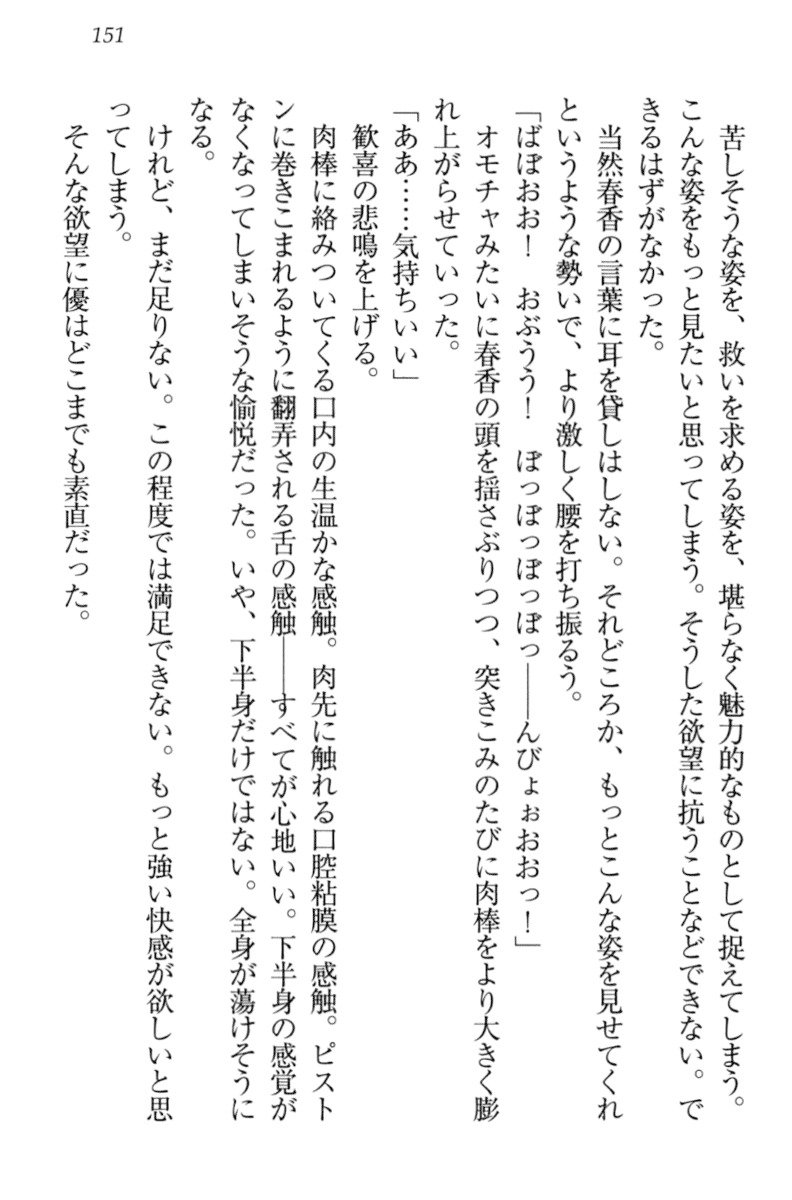 151
苦しそうな姿を、救いを求める姿を、堪らなく魅力的なものとして捉えてしまう。
こんな姿をもっと見たいと思ってしまう。そうした欲望に抗うことなどできない。で
きるはずがなかった。
当然春香の言葉に耳を貸しはしない。それどころか、もっとこんな姿を見せてくれ
というような勢いで、より激しく腰を打ち振るう。
「ばぼおお！　おぶうう！　ぼっぼっぼっぼっ――んびょぉおおっ！」
オモチャみたいに春香の頭を揺さぶりつつ、突きこみのたびに肉棒をより大きく膨
れ上がらせていった。
「ああ……気持ちいい」
歓喜の悲鳴を上げる。
肉棒に絡みついてくる口内の生温かな感触。肉先に触れる口腔粘膜の感触。ピスト
ンに巻きこまれるように翻弄される舌の感触――すべてが心地いい。下半身の感覚が
なくなってしまいそうな愉悦だった。いや、下半身だけではない。全身が蕩けそうに
なる。
けれど、まだ足りない。この程度では満足できない。もっと強い快感が欲しいと思
ってしまう。
そんな欲望に優はどこまでも素直だった。